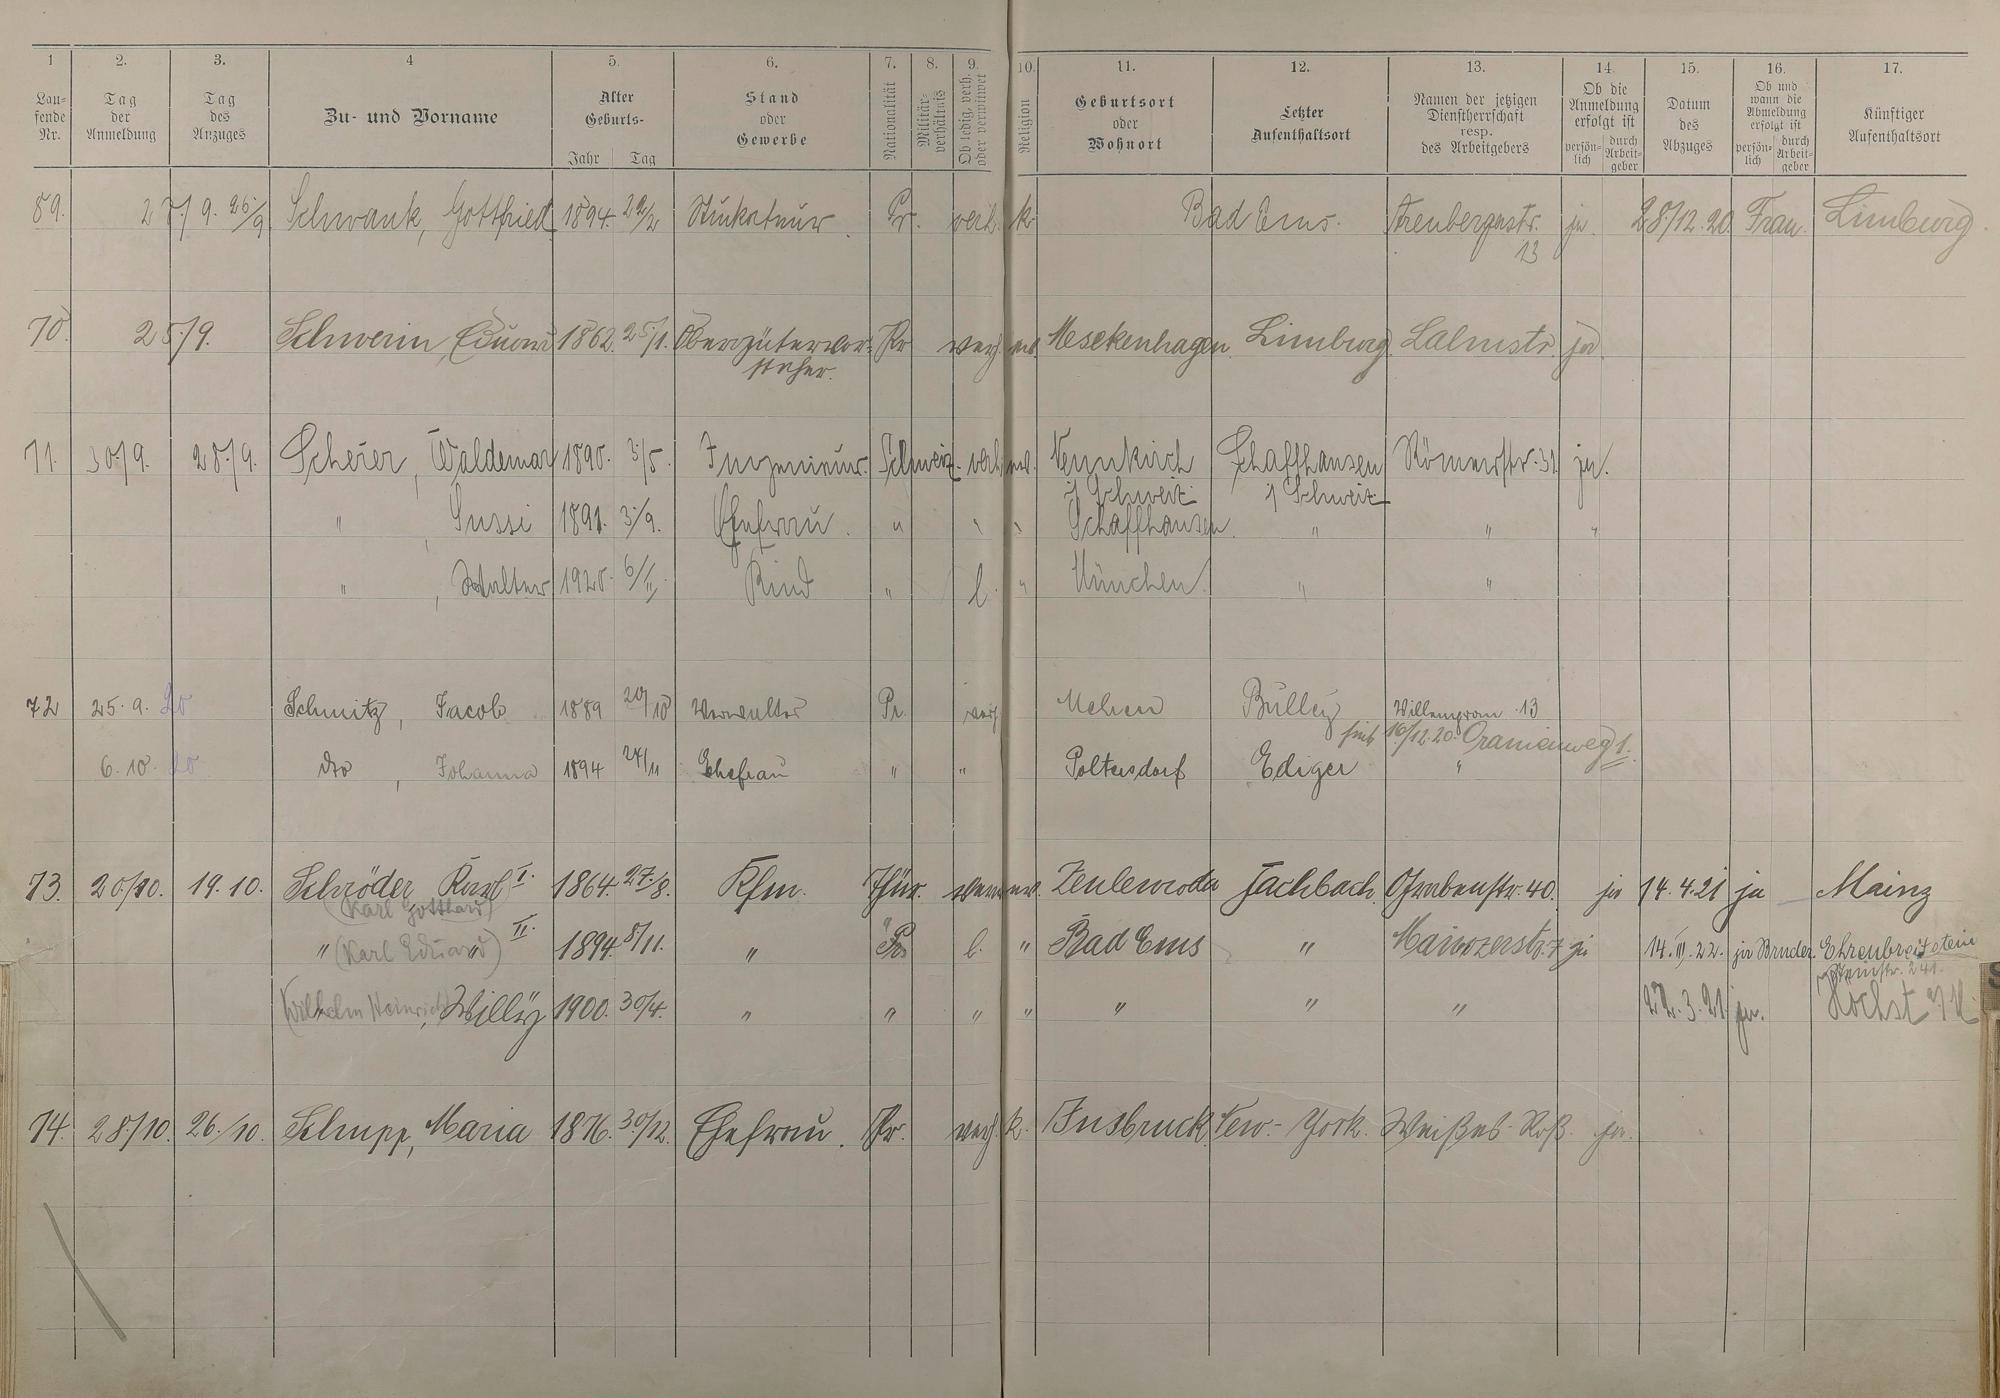 1 2. 3. 4 5. 6. 7. 8. 9. 10. 11. 12. 13. 14. 15. 16. 17.
Lau-fende Nr.
Tag der Anmeldung
Tag des Anzuges
Zu- und Vorname
Alter Geburts- Jahr Tag
Stand oder Gewerbe
Nationalität
Militär-verhältnis
Ob ledig, verh. oder verwitwet
Religion
Geburtsort oder Wohnort
Letzter Aufenthaltsort
Namen der jetzigen Dienstherrschaft resp. des Arbeitgebers
Ob die Anmeldung erfolgt ist persön-lich durch Arbeit-geber
Datum des Abzuges
Ob und wann die Abmeldung erfolgt ist persön-lich durch Arbeit-geber
Künftiger Aufenthaltsort
89. 27/9. 25/9 Schwank, Gottfried 1894. 22/2 Stukateur. Pr. verh. k. Bad Ems. Arenbergerstr. ja. 28/12.20. Frau. Limburg.
13
70. 25/9. Schwerin, Eduard 1862. 25/1. Obergütervor- Pr verh. ev. Mesekenhagen Limburg. Lahnstr. ja.
steher.
71. 30/9. 28/9. Scherer, Waldemar 1890. 3/5. Ingenieur. Schweiz. verh. ev. Neunkirch Schaffhausen Römerstr. 31 ja.
i/ Schweiz i/ Schweiz
" , Sussi 1891. 3/9. Ehefrau. " " " Schaffhausen. " " "
" , Walter 1920. 6/II. Kind " l. " München. " "
72 25.9.20 Schmitz, Jacob 1889 20/10 Verwalter Pr. verh. Mehren Bullay Willemprom. 13
seit 16/12.20. Oranienweg 1.
6.10.20 do , Johanna 1894 24/11 Ehefrau " " Poltersdorf Ediger "
73. 20/10. 19.10. Schröder, Karl I. 1864. 27/8. Kfm. Thür. verw. ev. Zeulenroda Fachbach. Grabenstr. 40. ja 14.4.21 ja Mainz
(Karl Gotthard)
" (Karl Eduard) II. 1894. 8/11. " Pr. l. " Bad Ems " Mainzerstr. 7 ja 14.III.22. ja Bruder. Ehrenbreitstein
(Wilhelm Heinrich), Willy 1900. 30/4. " " " " " " " 22.3.21 ja. Höchst a/M.
74. 28/10. 26./10. Schupp, Maria 1876. 30/12. Ehefrau. Pr. verh. k. Insbruck. New-York. Weißes Roß. ja.